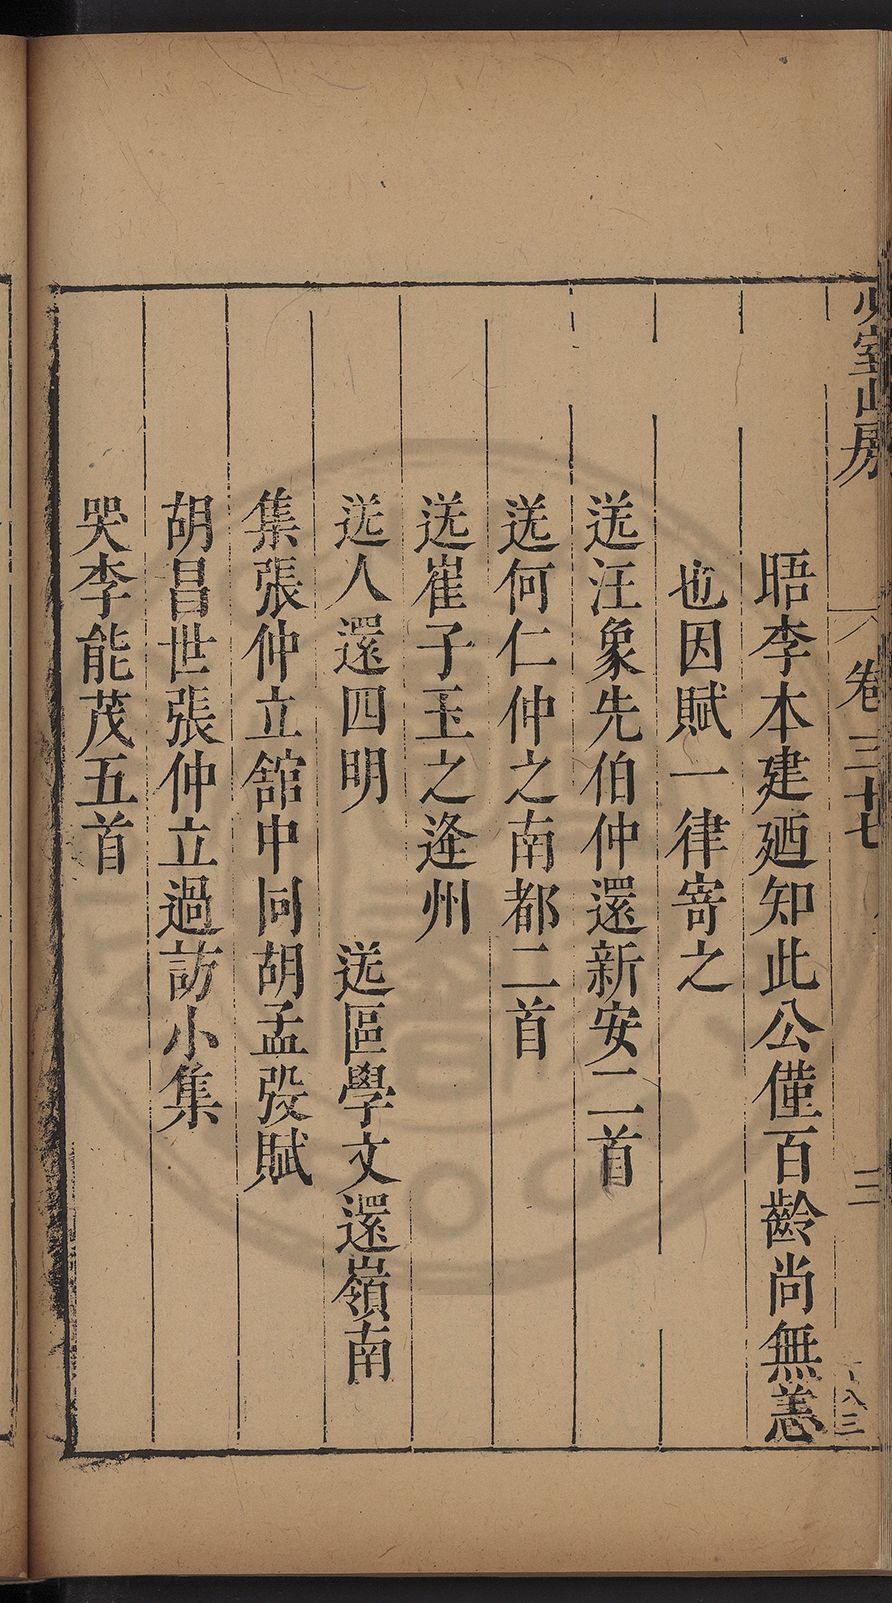 少室山房
卷三十七
三
晤李本建廼知此公僅百齡尚無恙
也因賦一律寄之
送汪象先伯仲還新安二首
送何仁仲之南都二首
送崔子玉之逢州
送人還四明　送區學文還嶺南
集張仲立舘中同胡孟弢賦
胡昌世張仲立過訪小集
哭李能茂五首